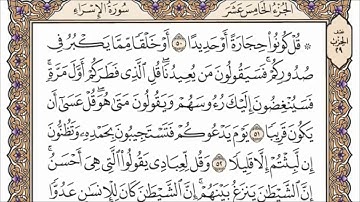 الجزء الخامس عشر
سورة الإسراء
۞ قُلْ كُونُوا۟ حِجَارَةً أَوْ حَدِيدًا ٥٠ أَوْ خَلْقًا مِّمَّا يَكْبُرُ فِى
صُدُورِكُمْ ۚ فَسَيَقُولُونَ مَن يُعِيدُنَا ۖ قُلِ ٱلَّذِى فَطَرَكُمْ أَوَّلَ مَرَّةٍ ۚ
فَسَيُنْغِضُونَ إِلَيْكَ رُءُوسَهُمْ وَيَقُولُونَ مَتَىٰ هُوَ ۖ قُلْ عَسَىٰٓ أَن
يَكُونَ قَرِيبًا ٥١ يَوْمَ يَدْعُوكُمْ فَتَسْتَجِيبُونَ بِحَمْدِهِۦ وَتَظُنُّونَ
إِن لَّبِثْتُمْ إِلَّا قَلِيلًا ٥٢ وَقُل لِّعِبَادِى يَقُولُوا۟ ٱلَّتِى هِىَ أَحْسَنُ ۚ
إِنَّ ٱلشَّيْطَٰنَ يَنزَغُ بَيْنَهُمْ ۚ إِنَّ ٱلشَّيْطَٰنَ كَانَ لِلْإِنسَٰنِ عَدُوًّا